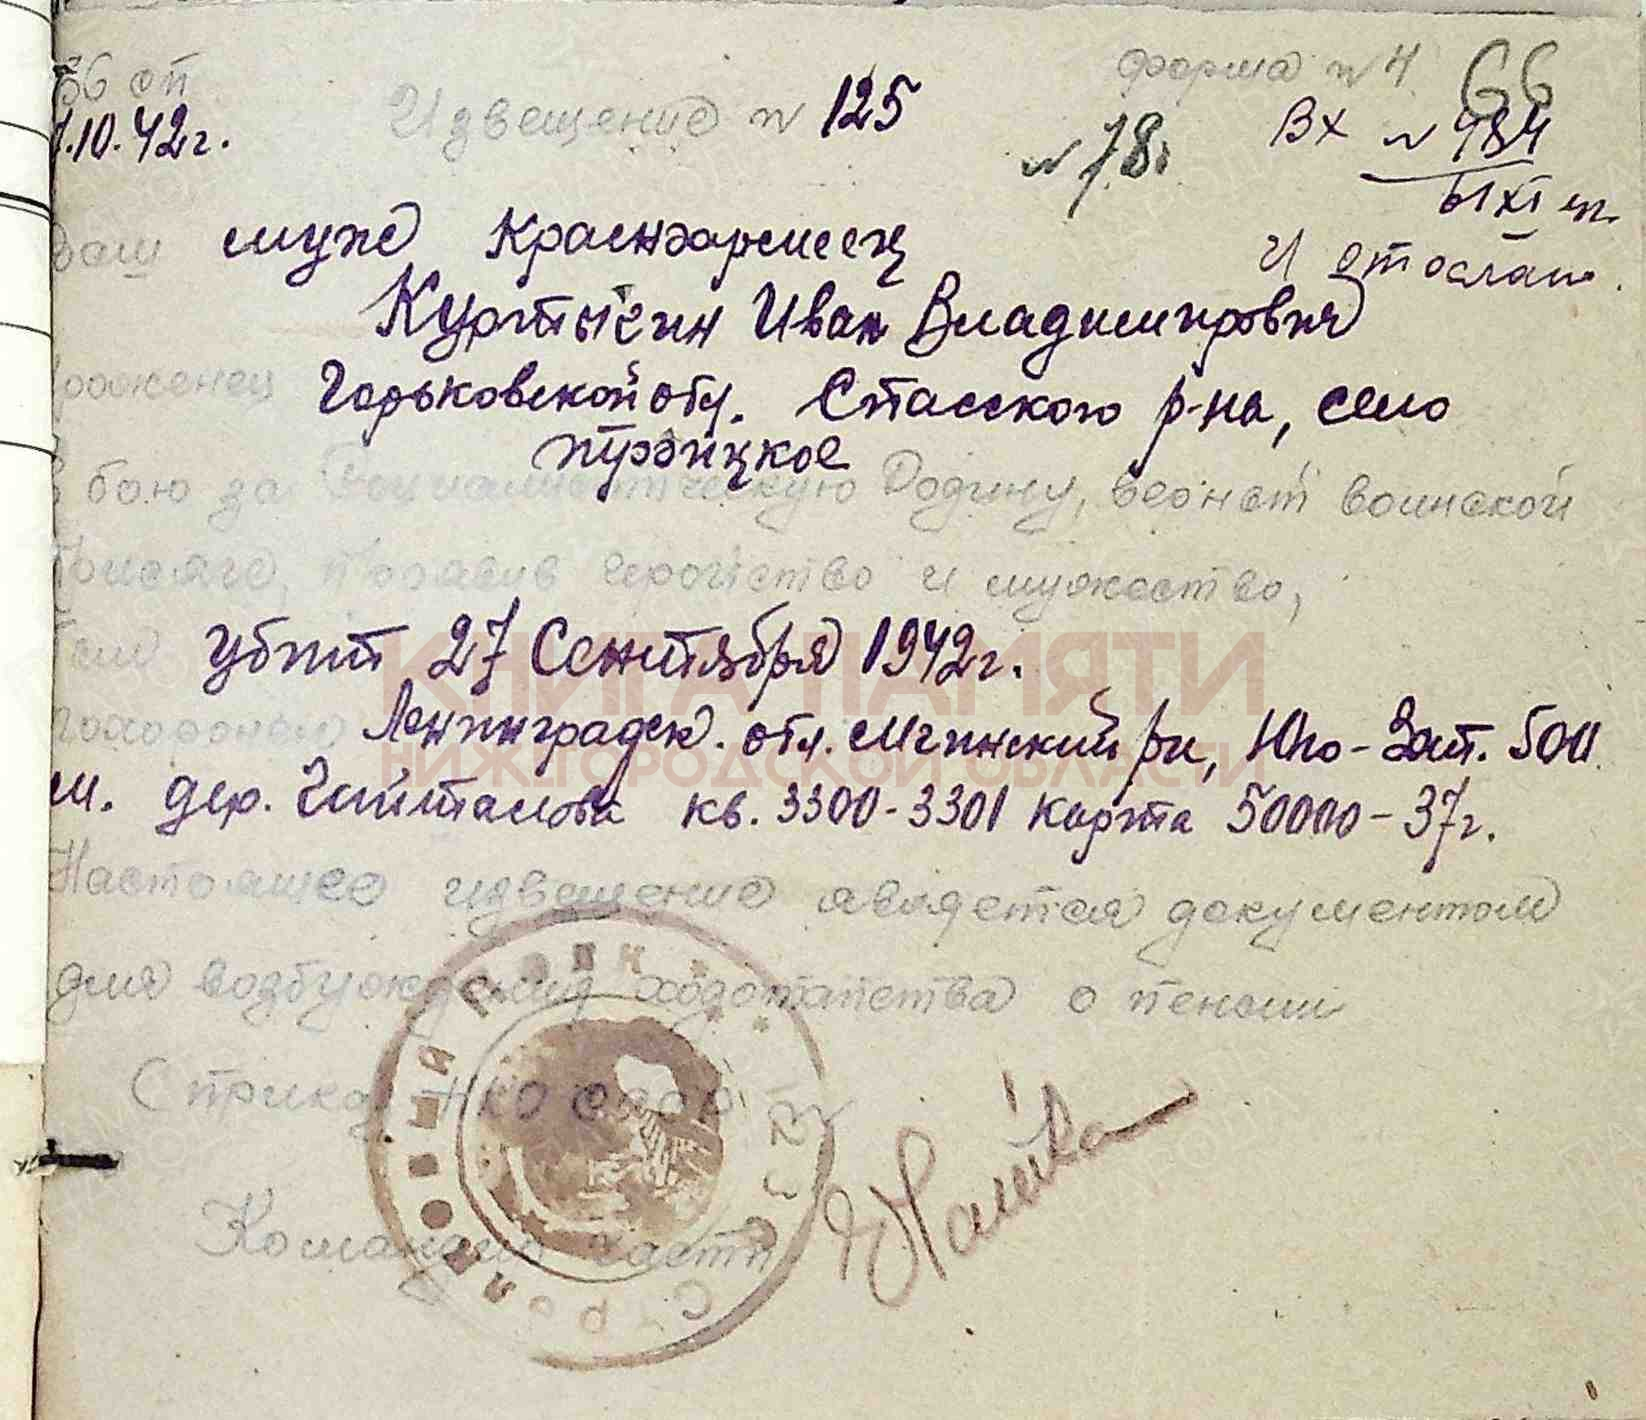 56 от форма n 4 66
7.10.42г. Извещение n 125 n 78. Вх n 484
61 XI m.
Ваш муж Красноармеец и отослан.
Куртыгин Иван Владимирович
уроженец Горьковской обл. Спасского р-на, село
Турзицкое
В бою за Социалистическую Родину, верност воинской
Присяге, проявив геройство и мужество,
был убит 27 Сентября 1942г.
похоронен Ленинградск. обл. Мгинский р-н, Юго-Зап. 500
м. дер. Гайталово кв. 3300-3301 карта 50000-37г.
Настоящее извещение является документом
для возбуждения ходатайства о пенсии
(приказ НКО СССР n
Командир части
СТРЕЛКОВЫЙ ПОЛК
КНИГА ПАМЯТИ
НИЖЕГОРОДСКОЙ ОБЛАСТИ